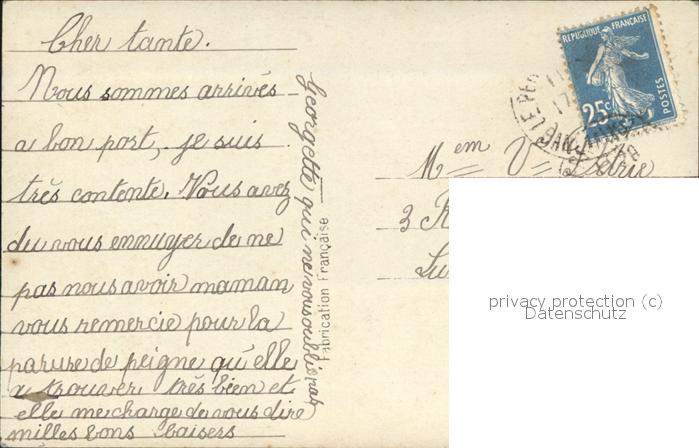 Cher tante.
Nous sommes arrivés
a bon port, je suis
très contente. Vous avez
du vous ennuyer de ne
pas nous avoir maman
vous remercie pour la
parure de peigne qu'elle
a trouver très bien et
elle me charge de vous dire
milles bons baisers
Georgette qui ne vous oublie pas
Fabrication Française
REPUBLIQUE FRANÇAISE
25c
POSTES
Mem V=
3 R
privacy protection (c)
Datenschutz